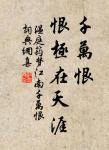 千萬恨
恨極在天涯
溫庭筠夢江南千萬恨
詞典網集